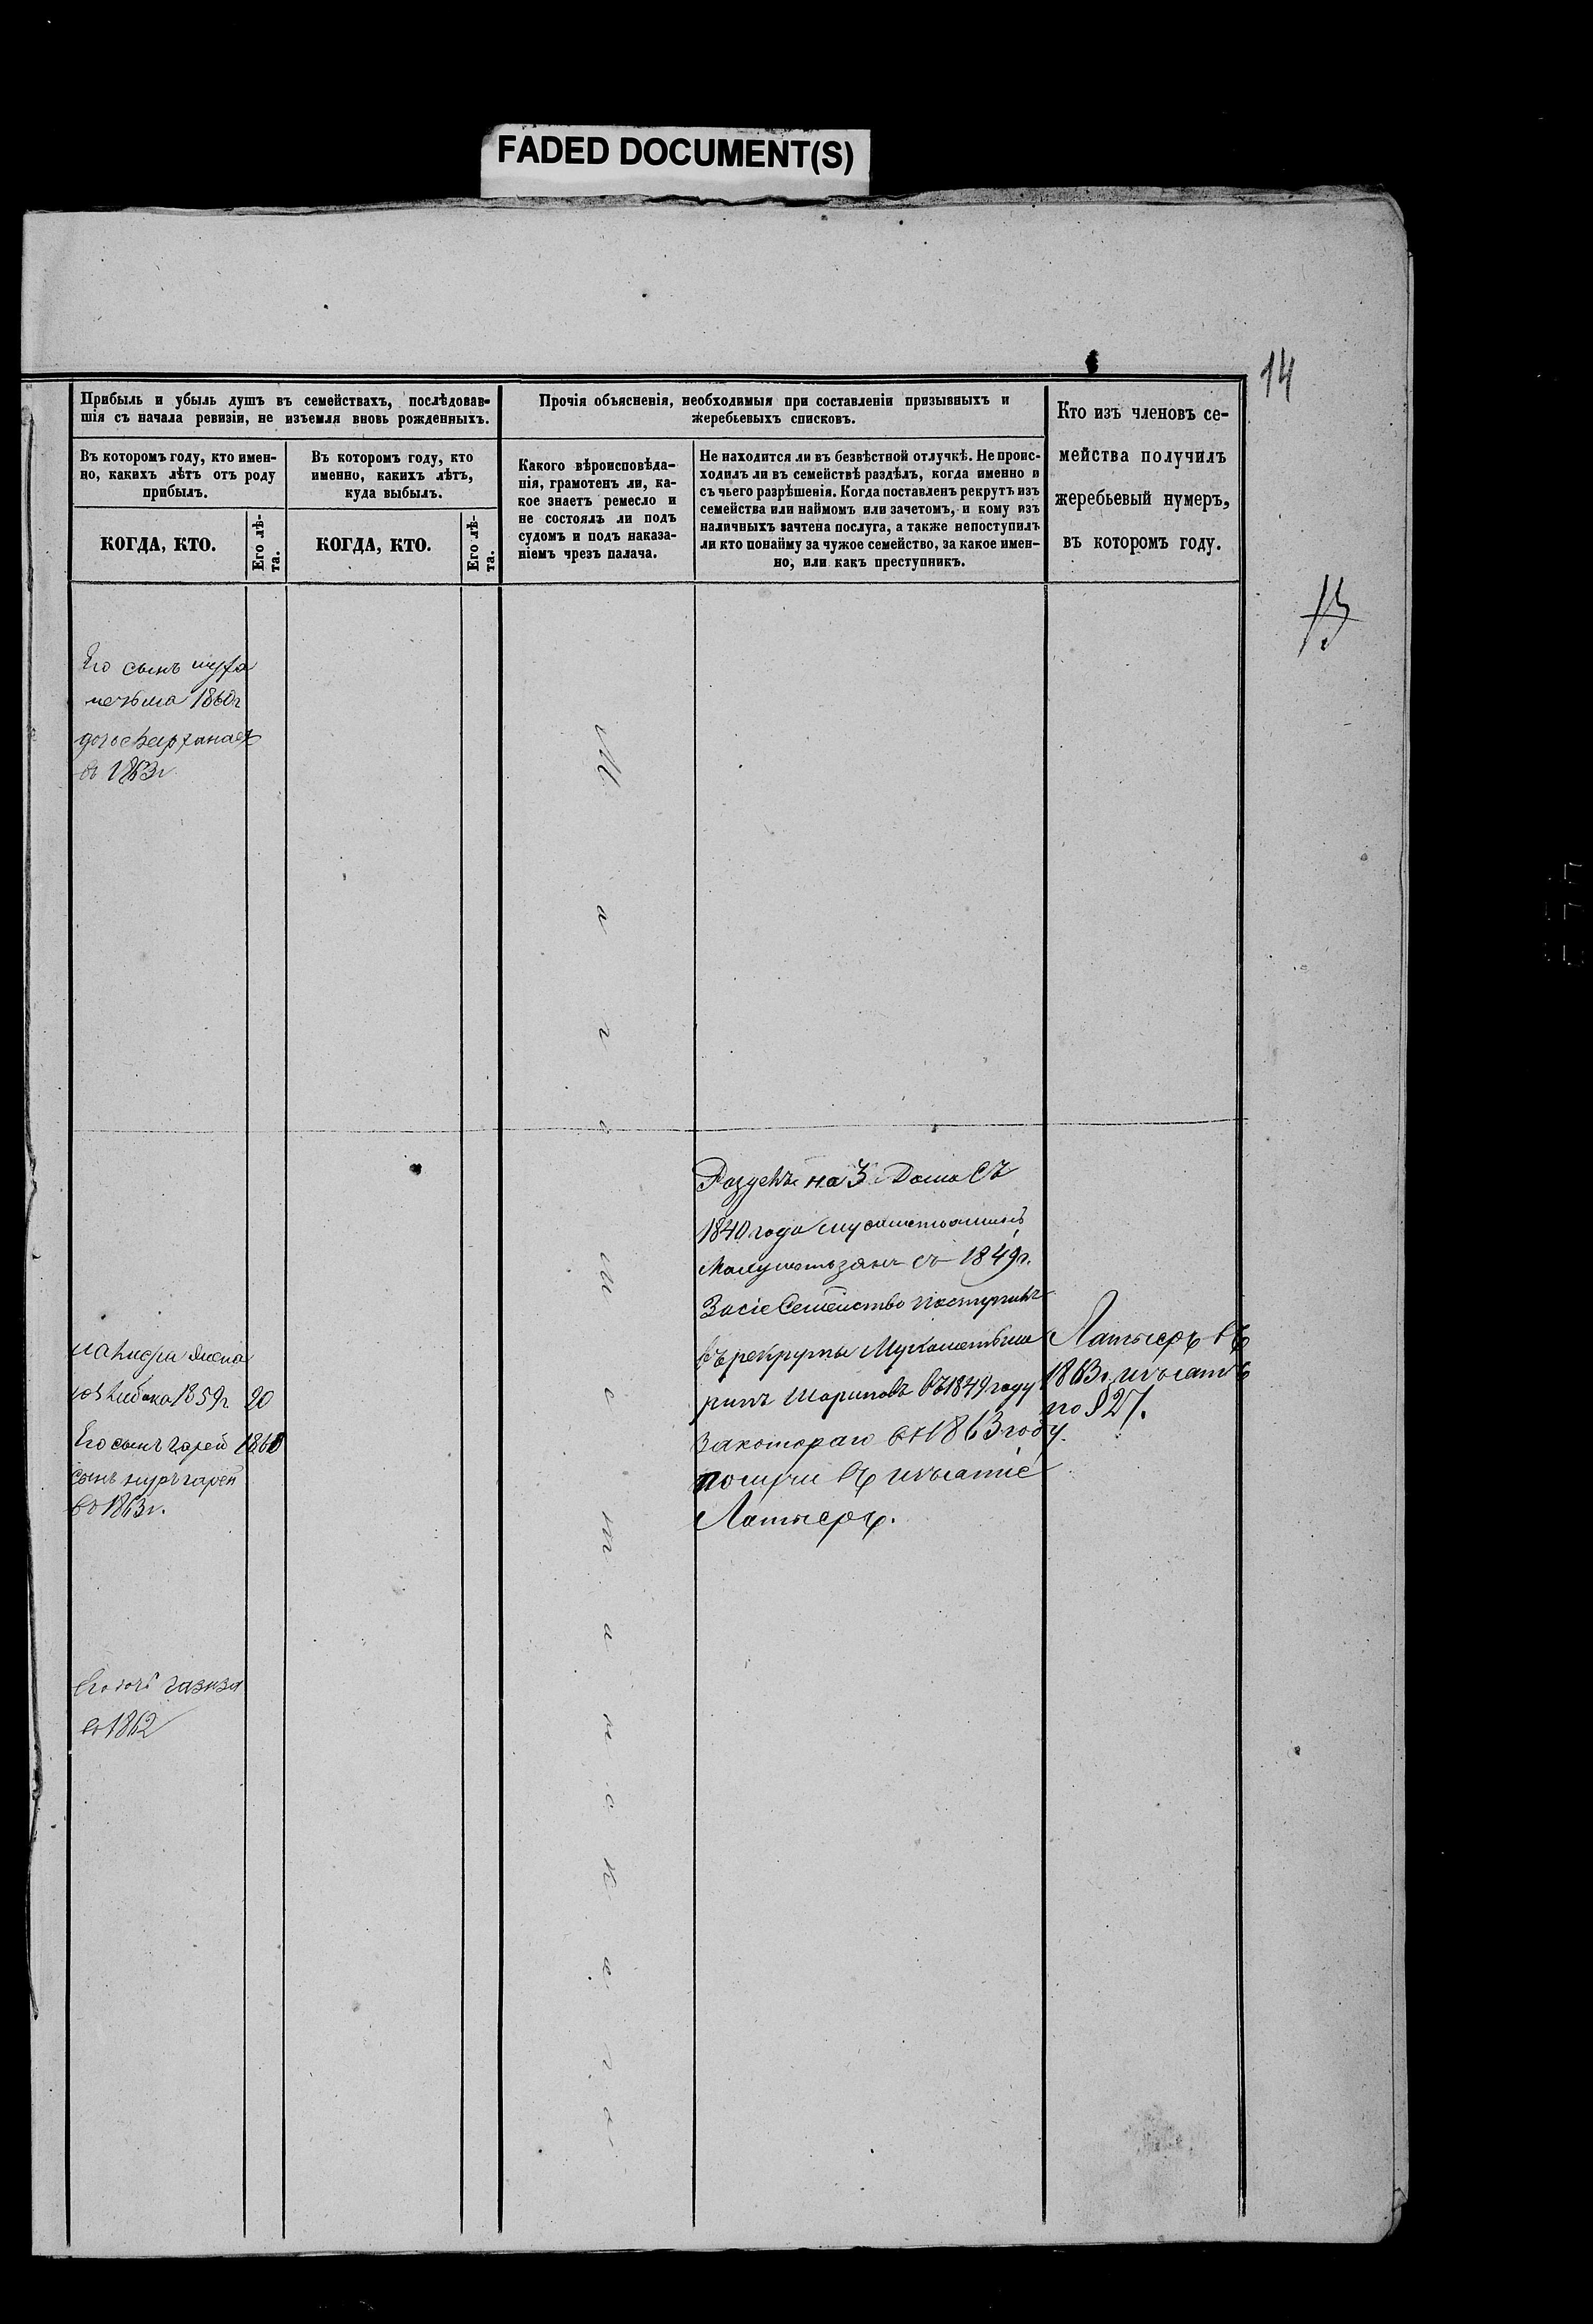 FADED DOCUMENT(S)
14
Прибыль и убыль душъ въ семействахъ, послѣдовав-
шія съ начала ревизіи, не изъемля вновь рожденныхъ.
Въ которомъ году, кто имен-
но, какихъ лѣтъ отъ роду
прибылъ.
КОГДА, КТО.
Его лѣ-
та.
Въ которомъ году, кто
именно, какихъ лѣтъ,
куда выбылъ.
КОГДА, КТО.
Его лѣ-
та.
Прочія объясненія, необходимыя при составленіи призывныхъ и
жеребьевыхъ списковъ.
Какого вѣроисповѣда-
нія, грамотенъ ли, ка-
кое знаетъ ремесло и
не состоялъ ли подъ
судомъ и подъ наказа-
ніемъ чрезъ палача.
Не находится ли въ безвѣстной отлучкѣ. Не проис-
ходилъ ли въ семействѣ раздѣлъ, когда именно и
съ чьего разрѣшенія. Когда поставленъ рекрутъ изъ
семейства или наймомъ или зачетомъ, и кому изъ
наличныхъ зачтена послуга, а также непоступилъ
ли кто понайму за чужое семейство, за какое имен-
но, или какъ преступникъ.
Кто изъ членовъ се-
мейства получилъ
жеребьевый нумеръ,
въ которомъ году.
13
Его сынъ
1860г
въ 1863г
Магометанскаго
Раздѣлъ на 3 Дома съ
1840 года
съ 1849г.
Засіе Семейство поступилъ
въ рекруты
Шариповъ въ 1849 году
закотораго въ 1863 году
въ
Латыеръ.
Латыеръ въ
1863г
по § 27.
1859г 20
Его сынъ гарей 1860
сынъ нургарей
въ 1863г.
Его газиза
въ 1862